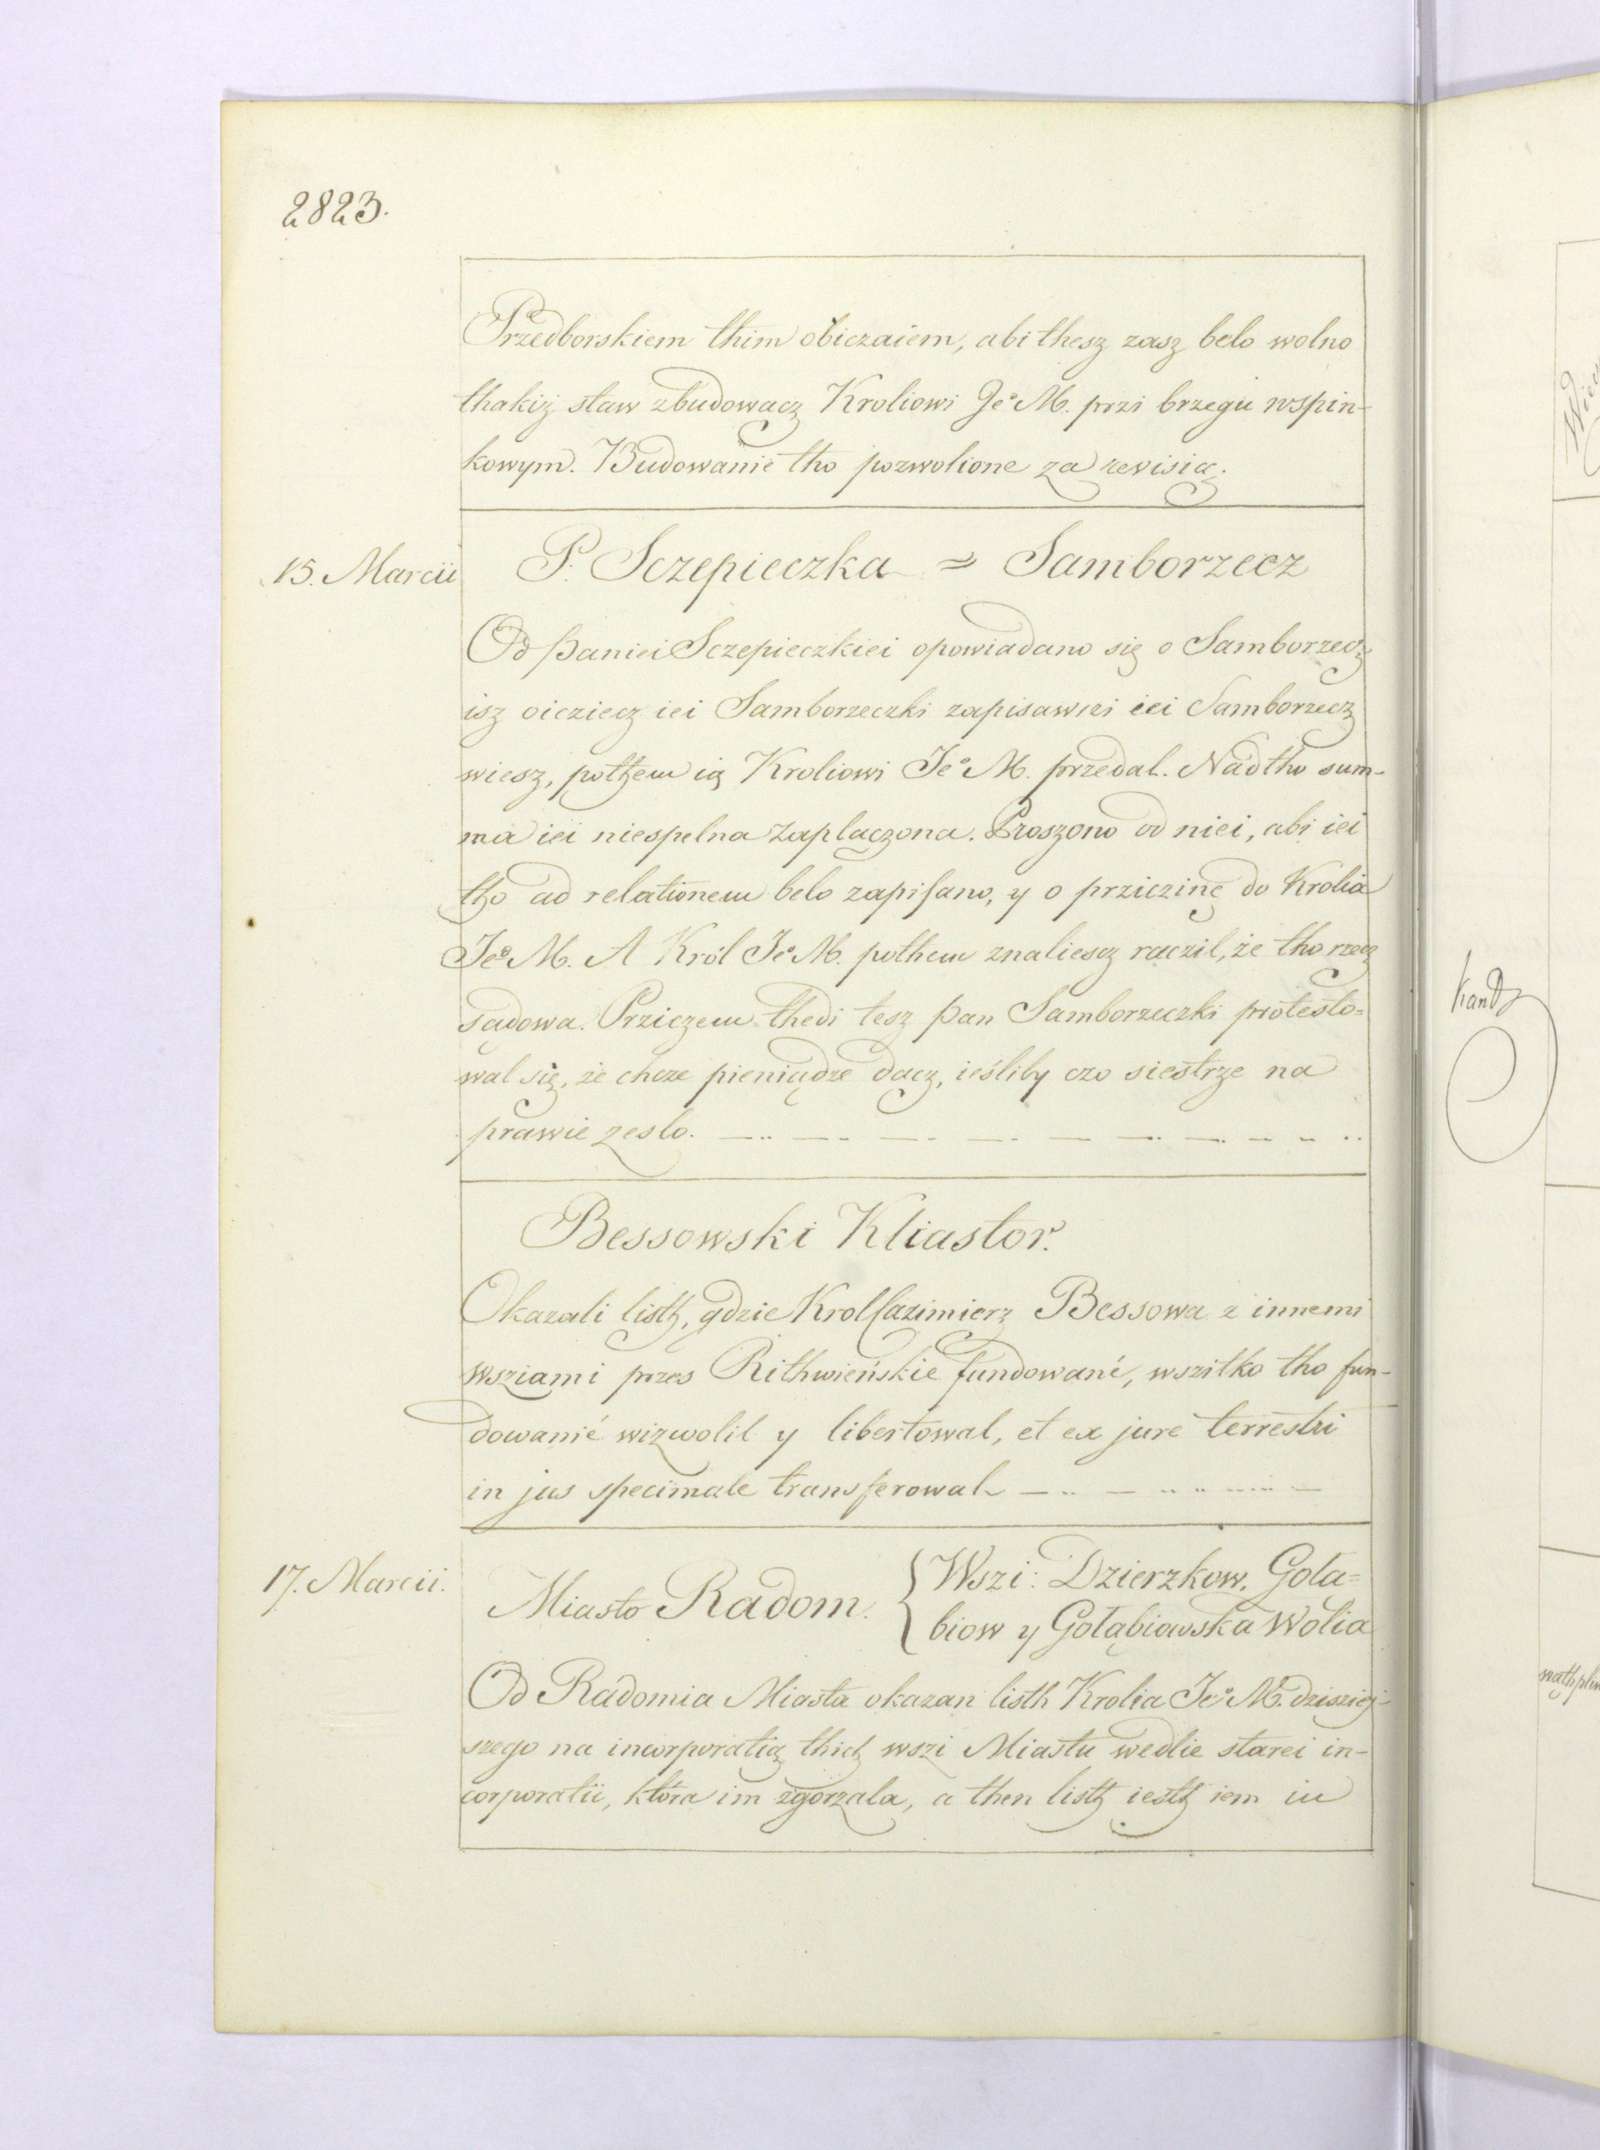 2823.
Przedborskiem thim obiczaiem, abi thesz zasz belo wolno
thakiż staw zbudowacz Kroliowi Jeº M. przi brzegu wspin-
kowym. Budowanie tho pozwolione za rewisią.
15. Marcii
P. Sczepieczka = Samborzecz
Od Paniei Sczepieczkiei opowiadano się o Samborzecz
isz oicziecz iei Samborzeczki zapisawszi iei Samborzecz
wiesz, pothem ią Kroliowi Jeº M. przedal. Nadtho sum-
ma iei niespelna zaplaczona. Proszono od niei, abi iei
tho ad relationem belo zapisano, y o przicżinę do Krolia
Jeº M. A Król Jeº M. pothem znaliescz raczil, że tho rzecz
sądowa. Przicżem thedi tesz pan Samborzeczki protesto-
wal się, że chcze pieniądze dacz, ieśliby czo siestrze na
prawie zeslo.
Bessowski Kliastor.
Okazali listh, gdzie Krol Cazimierz Bessowa z innemi
wsziami przes Rithwieńskie fundowané, wszitko tho fun-
dowanié wizwolil y libertowal, et ex jure terrestri
in jus specimale transferowal
17. Marcii.
Miasto Radom. { Wszi: Dzierzkow, Gola-
biow y Gołąbiowska Wolia
Od Radomia Miasta okazan listh Krolia Jeº M. dzisziej-
szego na incorporatią thich wszi Miastu wedlie starei in-
corporatii, która im zgorzala, a then listh iesth iem in